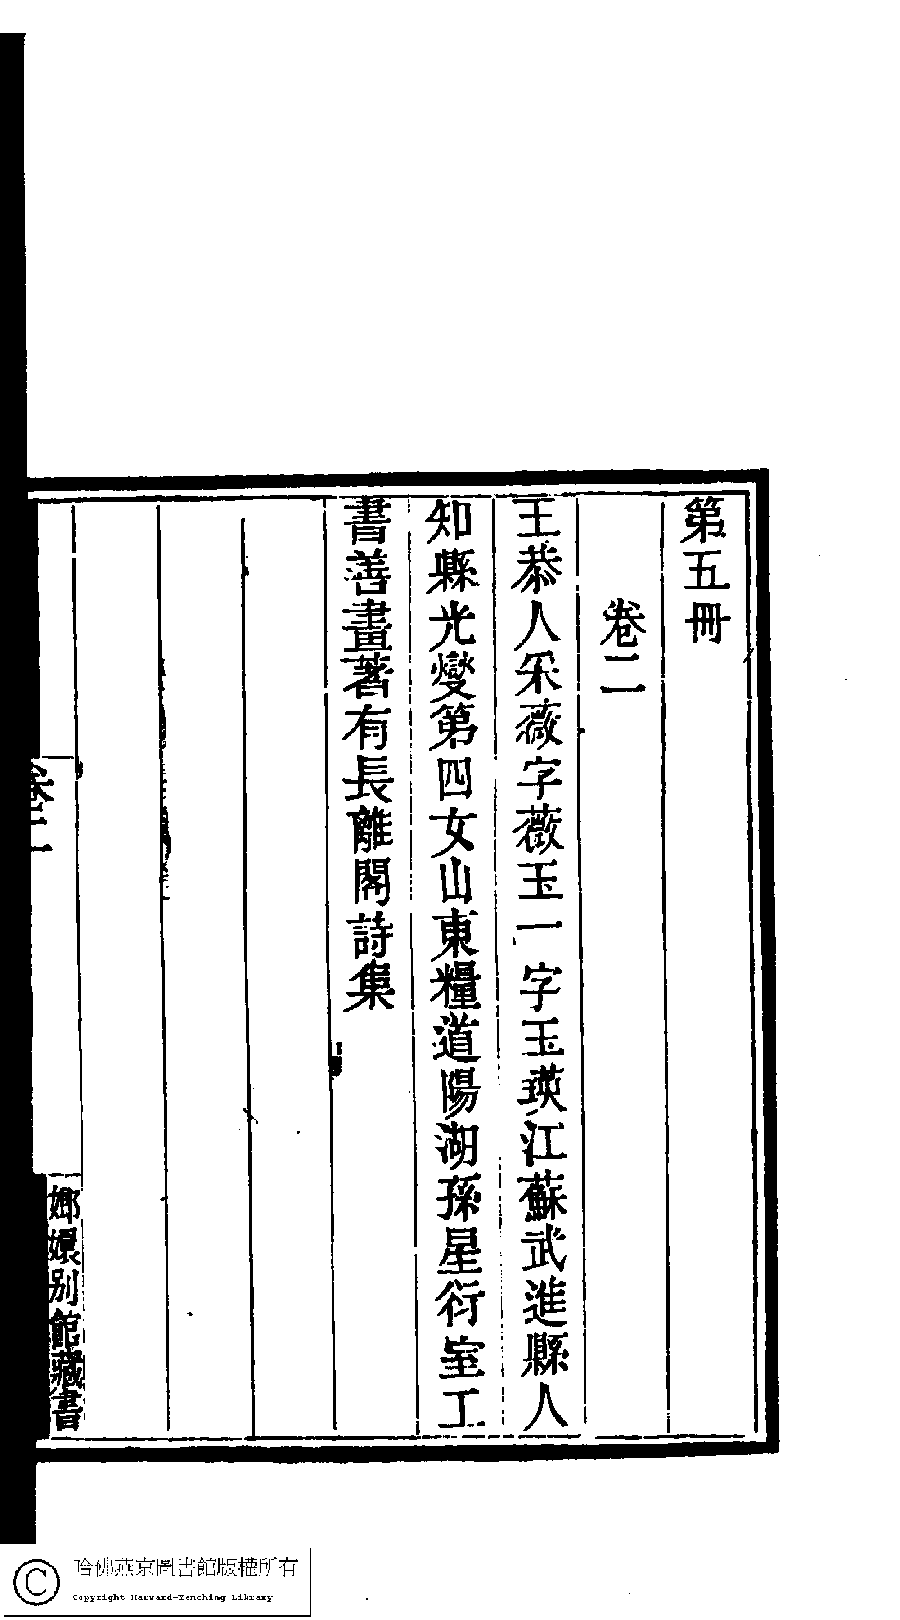 第五冊
卷二
王恭人采薇字薇玉一字玉瑛江蘇武進縣人
知縣光燮第四女山東糧道陽湖孫星衍室工
書善畫著有長離閣詩集
卷二
嫏嬛别館藏書
哈佛燕京圖書館版權所有
Copyright Harvard-Yenching Library